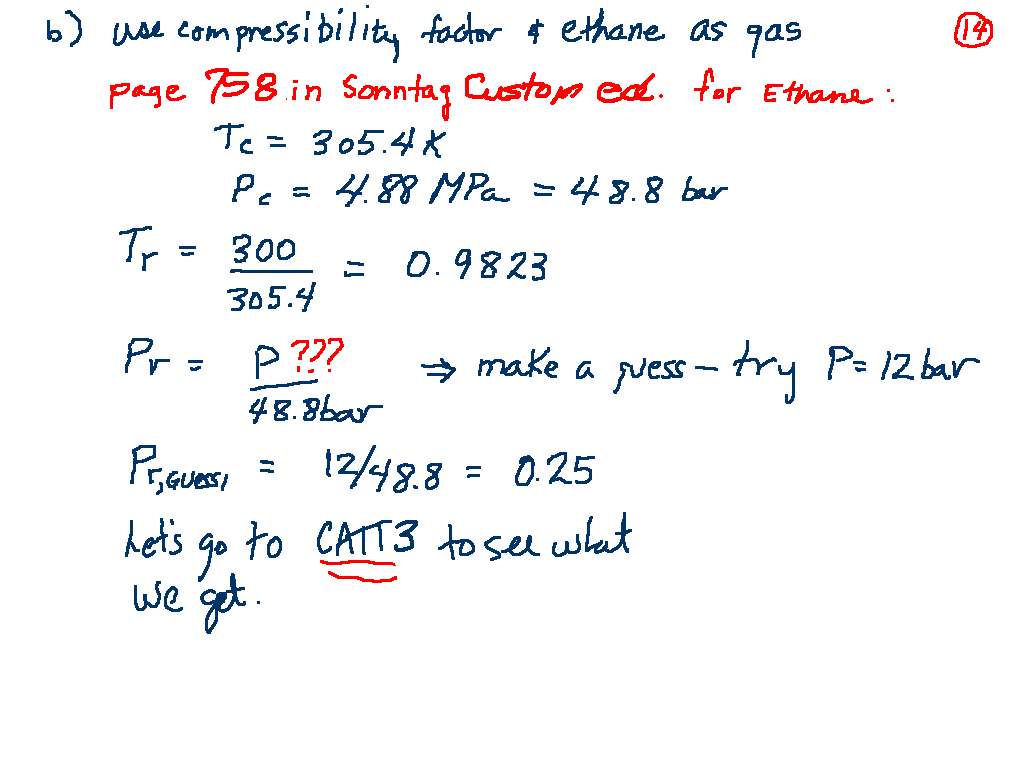 b) use compressibility factor & ethane as gas
14
page 758 in Sonntag Custom ed. for Ethane :
Tc = 305.4 K
Pc = 4.88 MPa = 48.8 bar
Tr = 300 / 305.4 = 0.9823
Pr = P ??? / 48.8bar ⇒ make a guess – try P= 12 bar
Pr,GUESS1 = 12/48.8 = 0.25
Let's go to CATT3 to see what
we get.